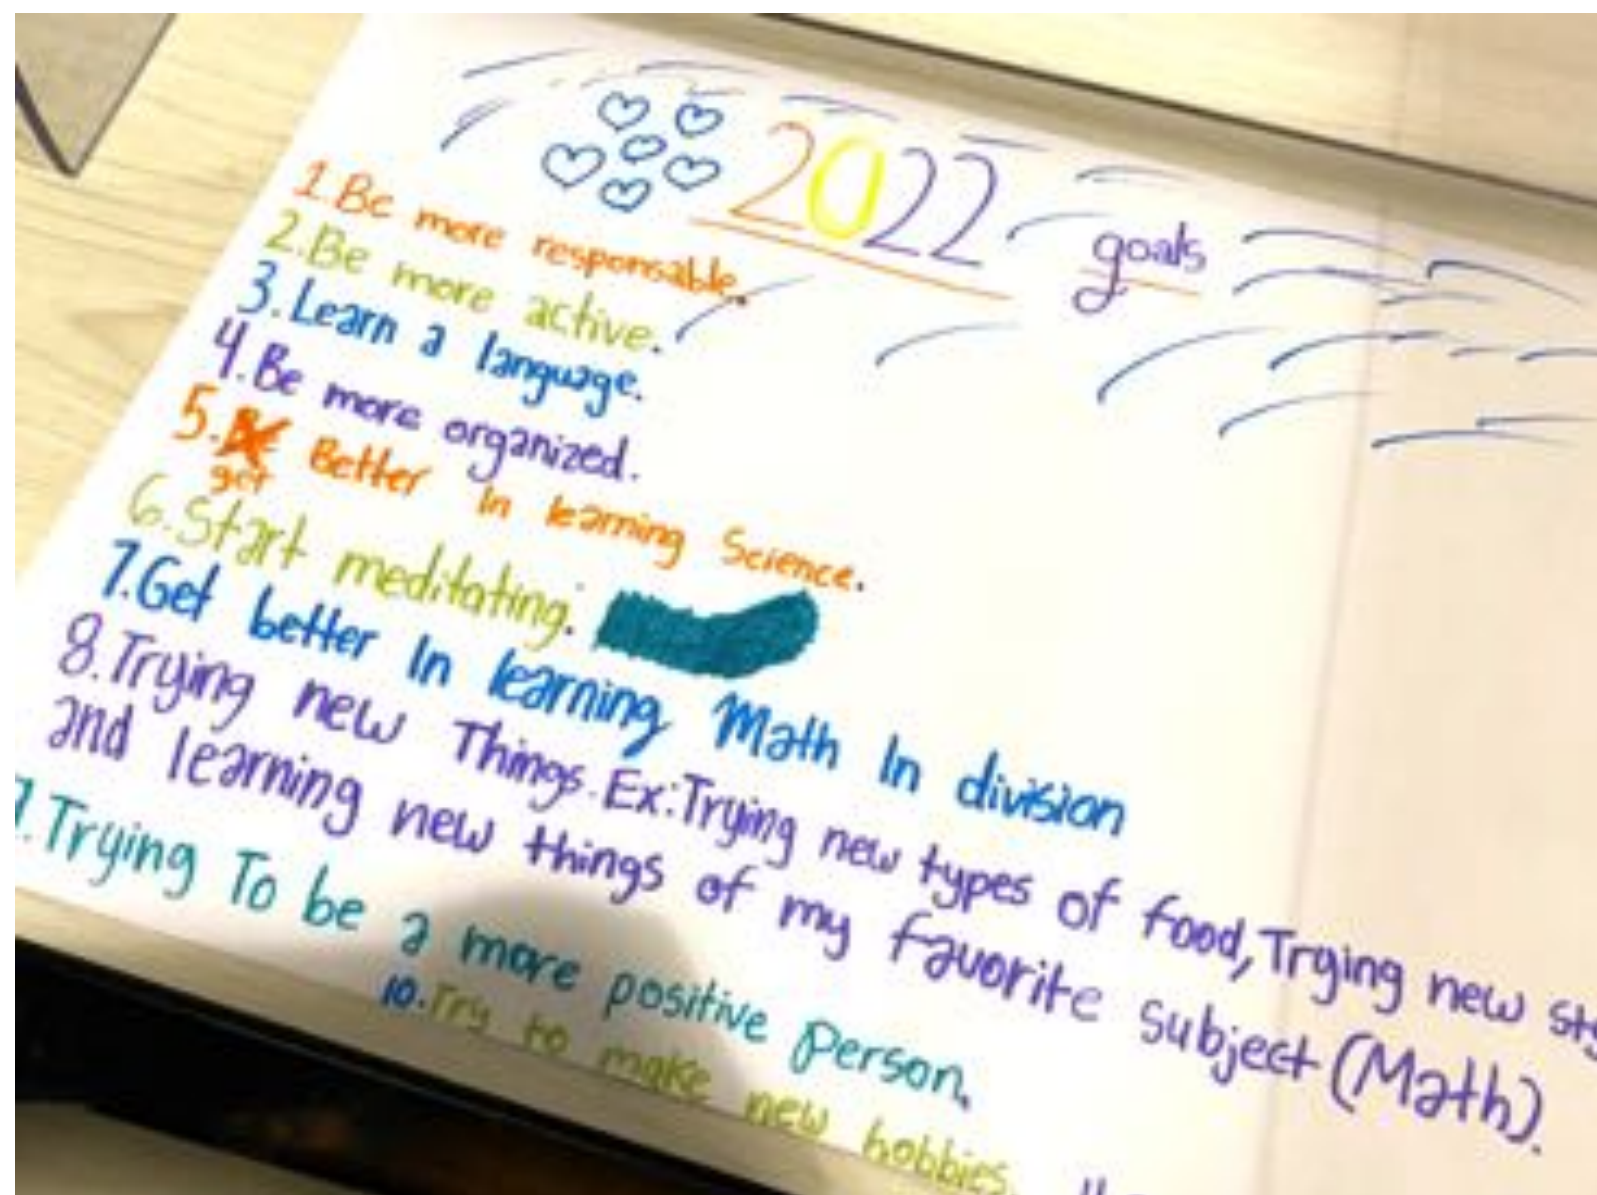 2022 goals
1. Be more responsable.
2. Be more active.
3. Learn a language.
4. Be more organized.
5. get Better In learning Science.
6. Start meditating.
7. Get better In learning Math In division
8. Trying new Things. Ex: Trying new types of food, Trying new
and learning new things of my favorite subject (Math).
9. Trying To be a more positive Person.
10. Try to make new hobbies.